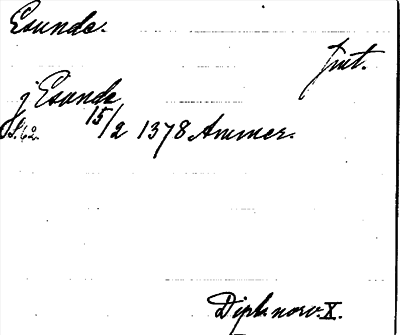 Esunda.
Jmt.
j Esunda,
S. 62. 15/2 1378 Ammer.
Dipl. norv. X.